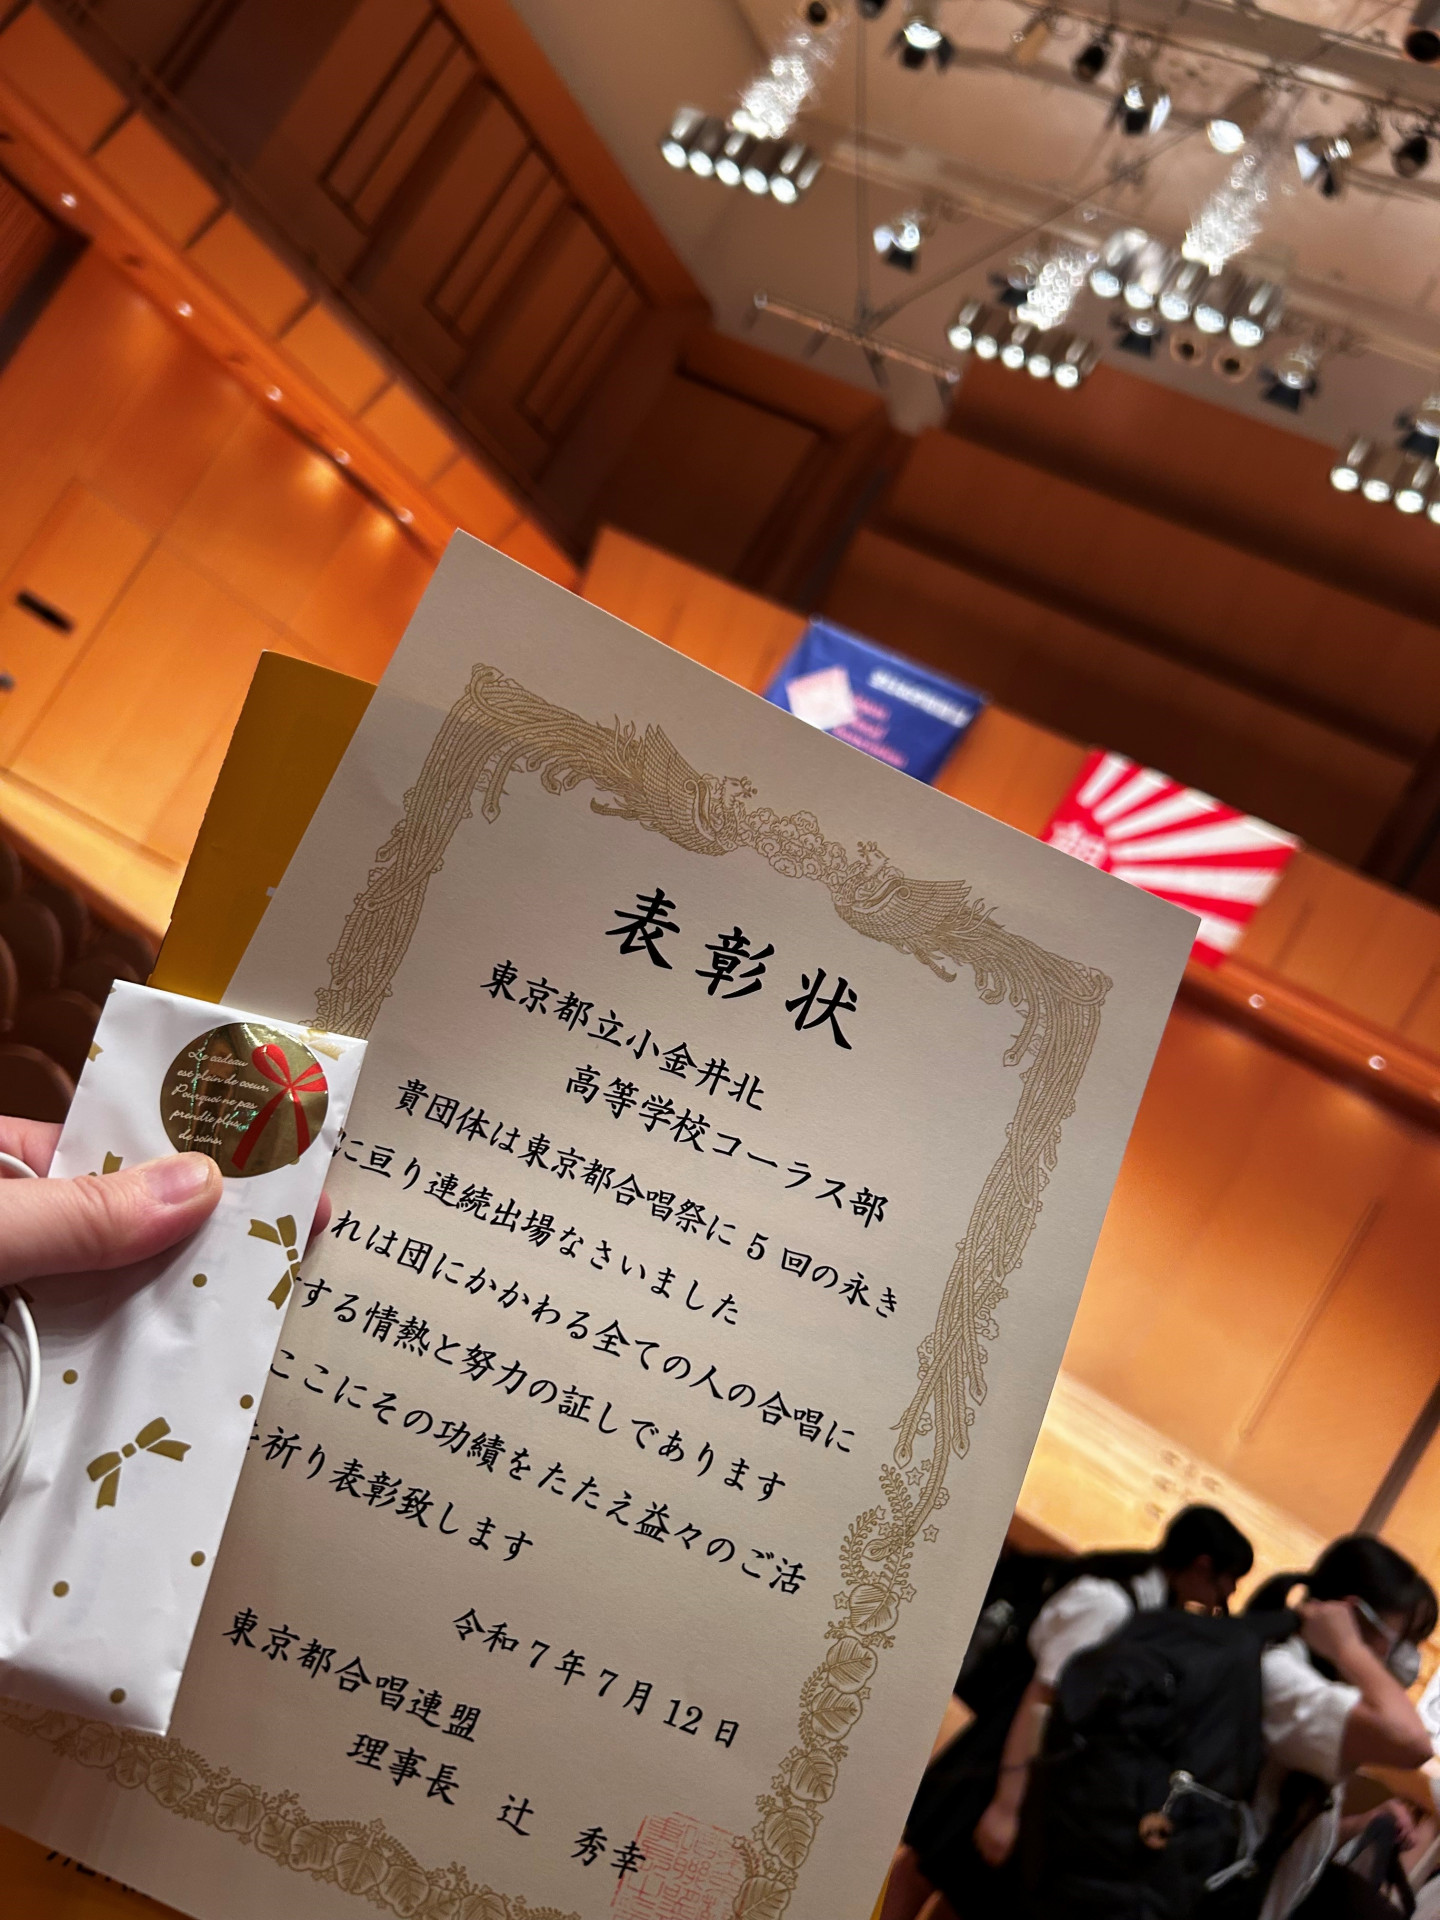 表彰状
東京都立小金井北
高等学校コーラス部
貴団体は東京都合唱祭に5回の永き
に亘り連続出場なさいました
れは団にかかわる全ての人の合唱に
する情熱と努力の証しであります
ここにその功績をたたえ益々のご活
祈り表彰致します
令和7年7月12日
東京都合唱連盟
理事長 辻 秀幸
Le cadeau
est plein de coeur.
Pourquoi ne pas
prendre plus
de soins.